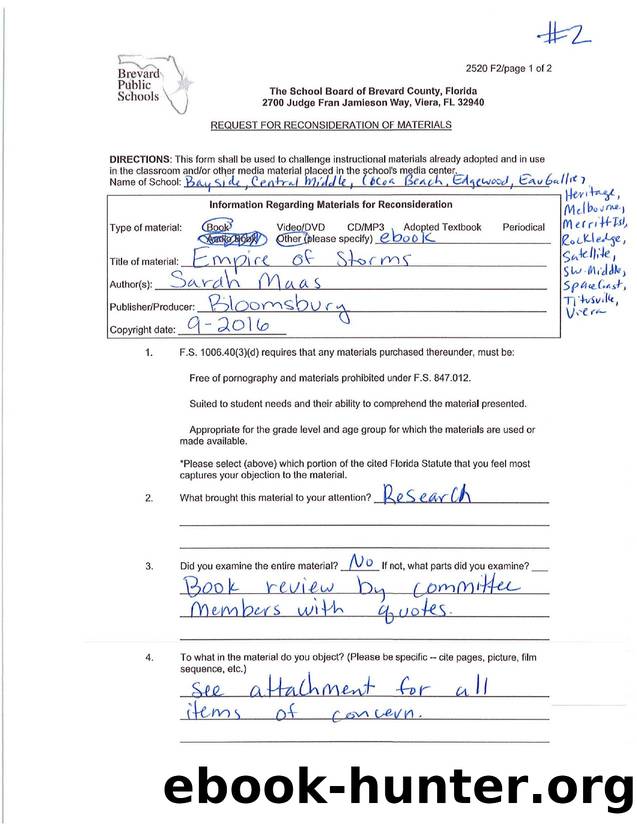 #2
2520 F2/page 1 of 2
Brevard
Public
Schools
The School Board of Brevard County, Florida
2700 Judge Fran Jamieson Way, Viera, FL 32940
REQUEST FOR RECONSIDERATION OF MATERIALS
DIRECTIONS: This form shall be used to challenge instructional materials already adopted and in use
in the classroom and/or other media material placed in the school's media center.
Name of School: Bayside, Central Middle, Cocoa Beach, Edgewood, Eau Gallie,
Heritage,
Melbourne,
Merritt Isl,
Rockledge,
Satellite,
SW-Middle,
Space Coast,
Titusville,
Viera
Information Regarding Materials for Reconsideration
Type of material: Book Video/DVD CD/MP3 Adopted Textbook Periodical
Audio Book Other (please specify) ebook
Title of material: Empire of Storms
Author(s): Sarah Maas
Publisher/Producer: Bloomsbury
Copyright date: 9-2016
1. F.S. 1006.40(3)(d) requires that any materials purchased thereunder, must be:
Free of pornography and materials prohibited under F.S. 847.012.
Suited to student needs and their ability to comprehend the material presented.
Appropriate for the grade level and age group for which the materials are used or
made available.
*Please select (above) which portion of the cited Florida Statute that you feel most
captures your objection to the material.
2. What brought this material to your attention? Research
3. Did you examine the entire material? No If not, what parts did you examine?
Book review by committee
members with quotes.
4. To what in the material do you object? (Please be specific -- cite pages, picture, film
sequence, etc.)
See attachment for all
items of concern.
ebook-hunter.org